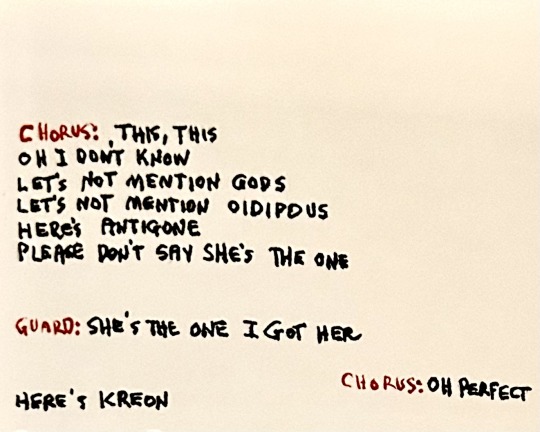 CHORUS: THIS, THIS
OH I DON'T KNOW
LET'S NOT MENTION GODS
LET'S NOT MENTION OIDIPOUS
HERE'S ANTIGONE
PLEASE DON'T SAY SHE'S THE ONE
GUARD: SHE'S THE ONE I GOT HER
CHORUS: OH PERFECT
HERE'S KREON